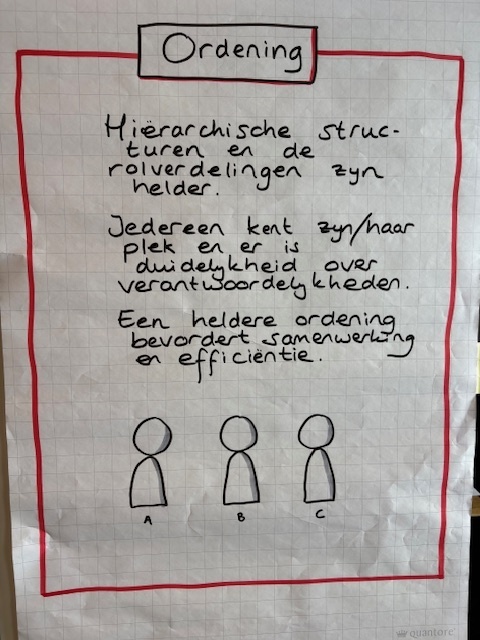 Ordening
Hiërarchische struc-
turen en de
rolverdelingen zyn
helder.
Jedereen kent zyn/haar
plek en er is
duidelykheid over
verantwoordelykheden.
Een heldere ordening
bevordert samenwerking
en efficiëntie.
A B C
quantore